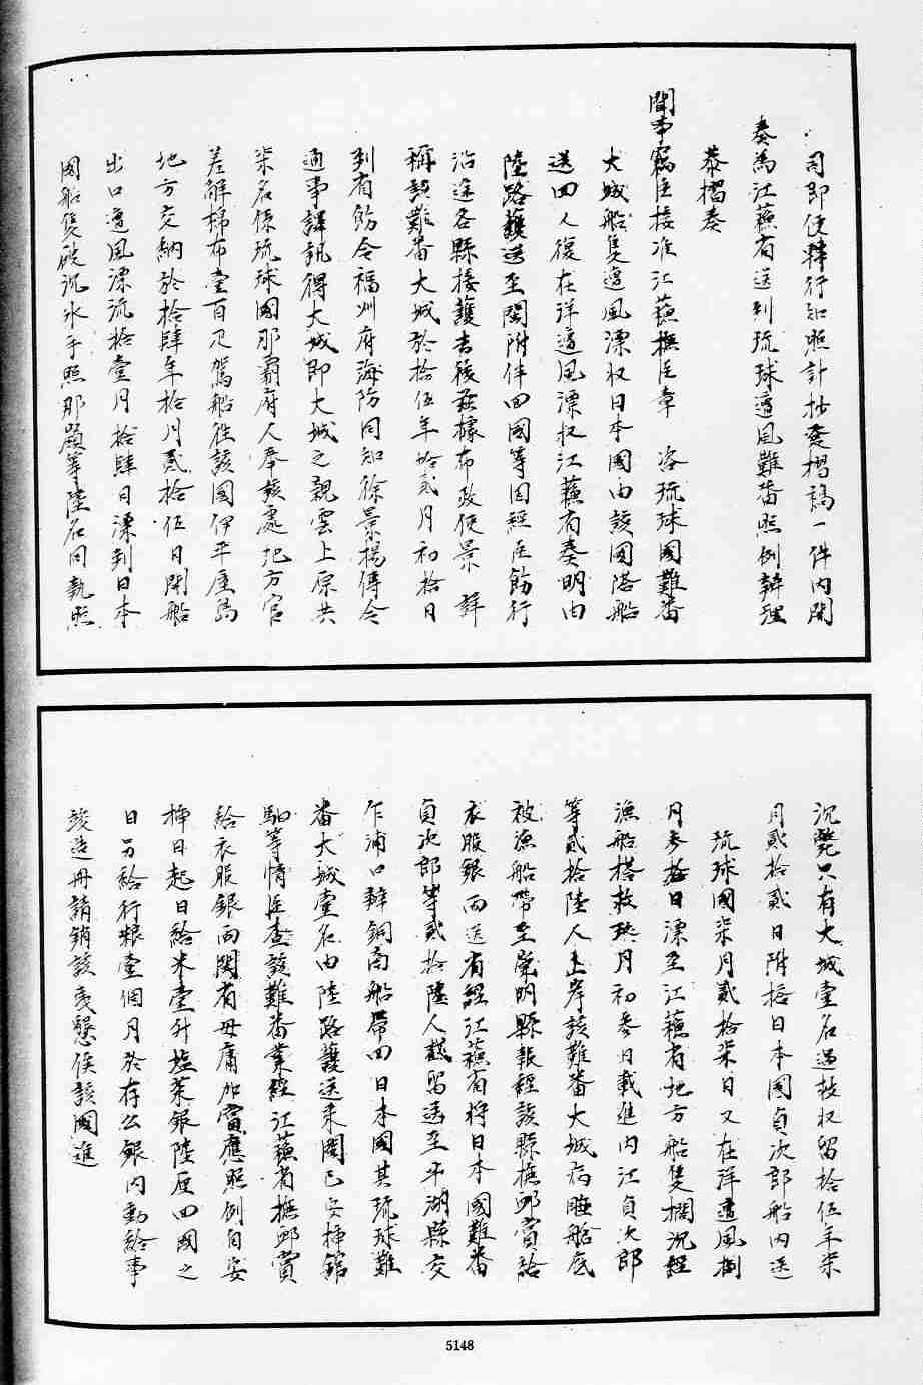 司即便轉行知照計抄奏摺稿一件內開
奏為江蘇省送到琉球遭風難番照例辦理
恭摺奏
聞事竊臣接准江蘇撫臣章 咨琉球國難番
大城船隻遭風漂收日本國由該國搭船
送回人復在洋遭風漂收江蘇省奏明由
陸路護送至閩附伴回國等因經臣飭行
沿途各縣接護去後茲據布政使景 詳
稱該難番大城於拾伍年拾貳月初拾日
到省飭令福州府海防同知徐景揚傳令
通事譯訊得大城即大城之親雲上原共
柒名係琉球國那霸府人奉該處地方官
差解棉布壹百疋駕船往該國伊平屋島
地方交納於拾肆年拾月貳拾伍日開船
出口遭風漂流拾壹月拾肆日漂到日本
國船隻破沉水手照那顏等陸名同執照
沉斃只有大城壹名遇救收留拾伍年柒
月貳拾貳日附搭日本國貞次郎船內送
琉球國柒月貳拾柒日又在洋遭風捌
月參拾日漂至江蘇省地方船隻擱沉經
漁船搭救玖月初參日載進內江貞次郎
等貳拾陸人上岸該難番大城病睡船底
被漁船帶至崑明縣報經該縣撫卹賞給
衣服銀兩送省經江蘇省將日本國難番
貞次郎等貳拾陸人截留送至平湖縣交
乍浦口辦銅商船帶回日本國其琉球難
番大城壹名由陸路護送來閩已安插館
驛等情臣查該難番業經江蘇省撫卹賞
給衣服銀兩閩省毋庸加賞應照例自安
插日起日給米壹升塩菜銀陸厘回國之
日另給行糧壹個月於存公銀內動給事
竣造冊請銷該夷懇俟該國進
5148